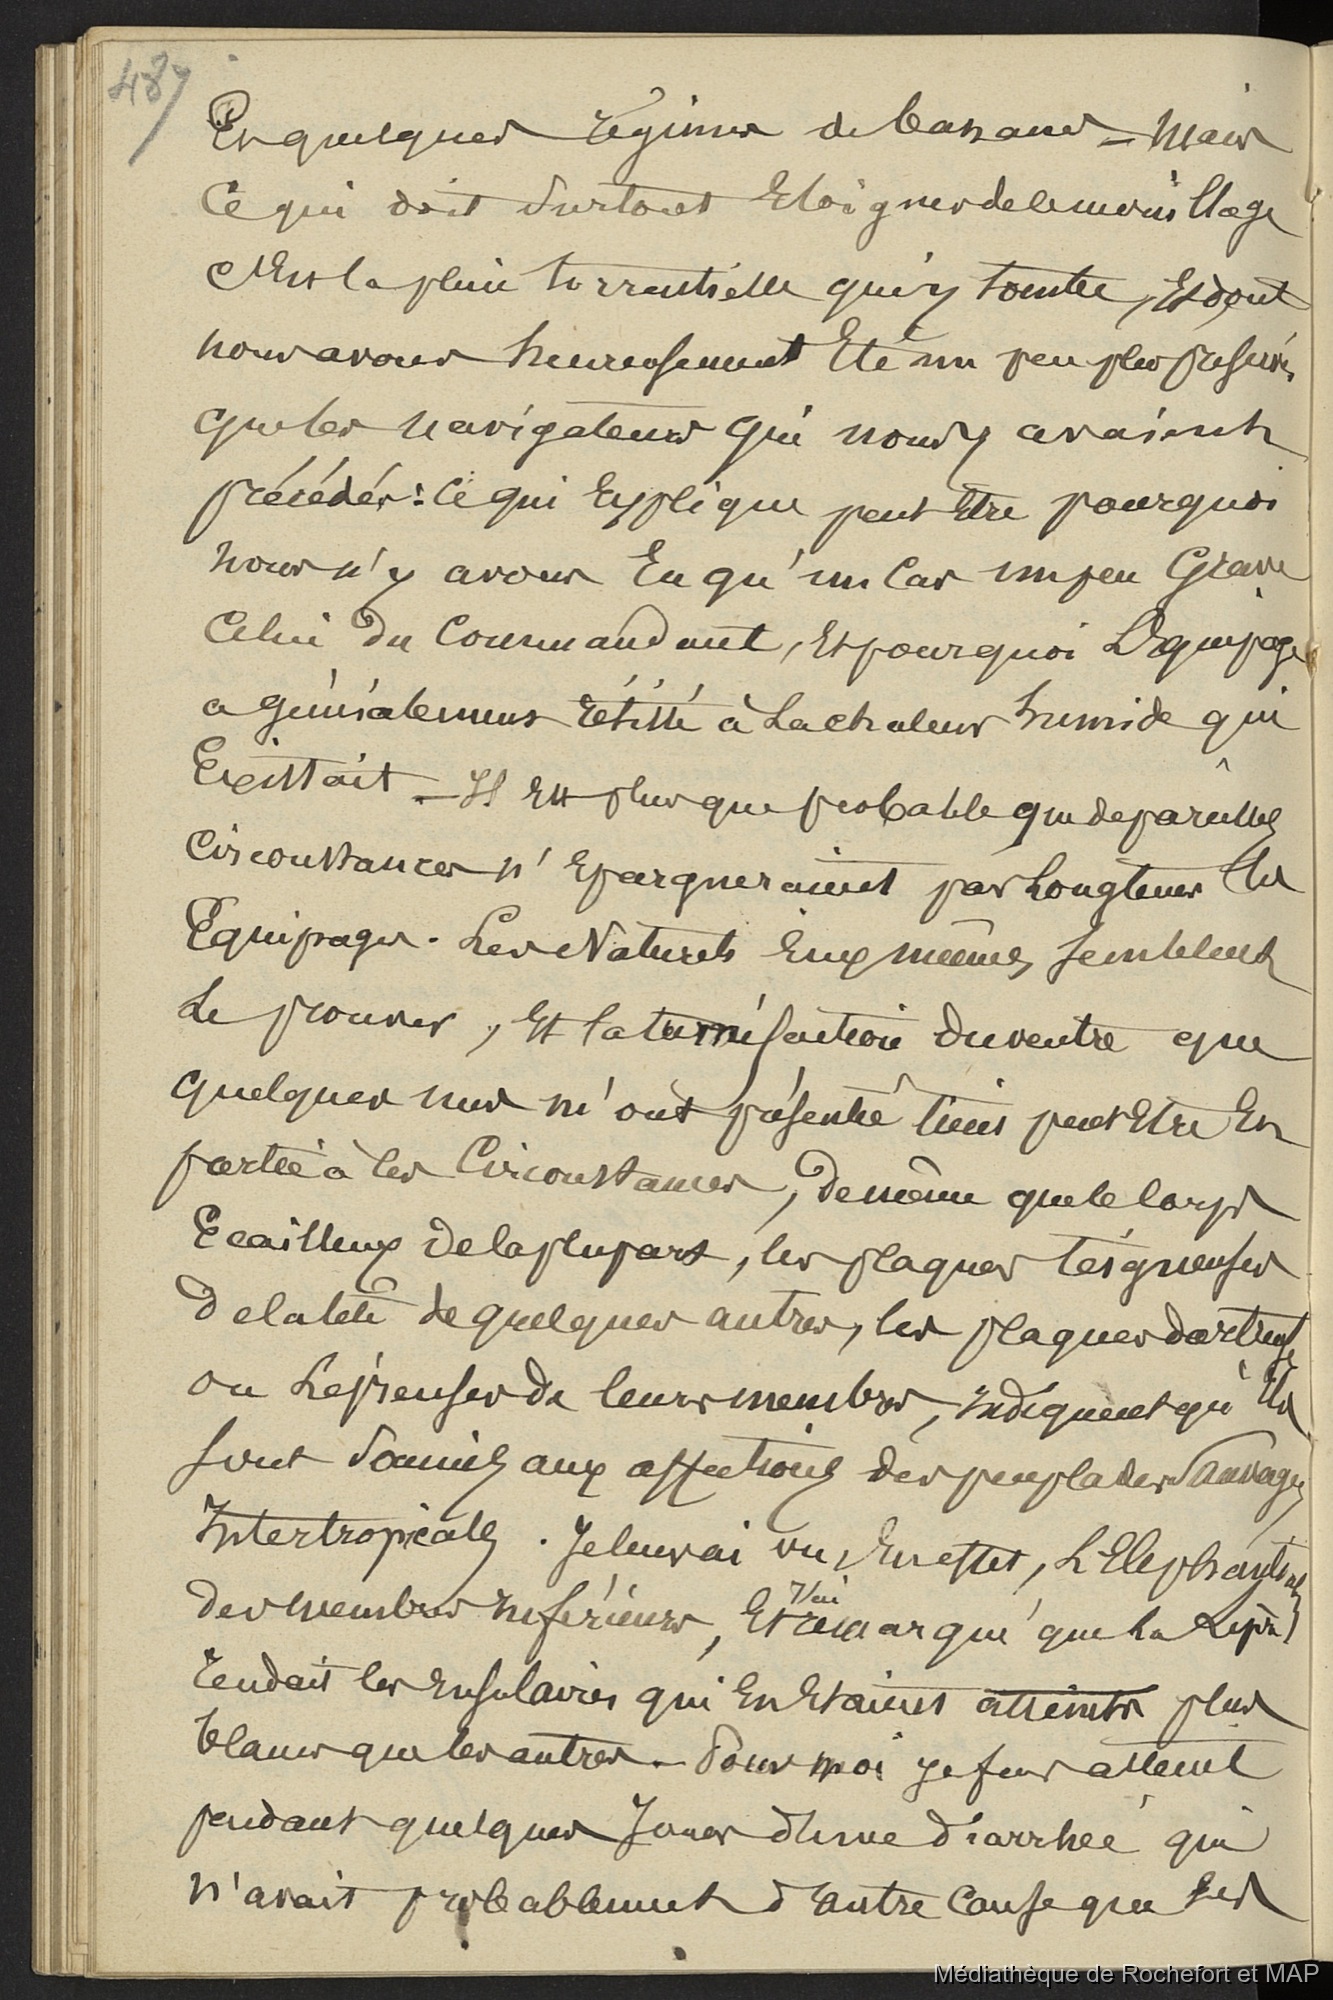 487
Et quelques régimes de bananes – Mais
Ce qui doit surtout Eloigner de le mouillage
c'Est la pluie torrentielle qui y tombe, Et dont
nous avons heureusement Eté un peu plus préservés
que les navigateurs qui nous y avaient
précédés : Ce qui Explique peut Etre pourquoi
nous n'y avons Eu qu'un Cas un peu Grave
Celui du Commandant, Et pourquoi L'Equipage
a généralement résisté à La chaleur humide qui
Existait – Il Est plus que probable que de pareilles
Circonstances n'Epargneraient pas Longtems les
Equipages. Les Naturels Eux mêmes semblent
Le prouver, Et la tuméfaction du ventre que
quelques uns m'ont présenté tient peut Etre En
partie à ces Circonstances, De même que le Corps
Ecailleux de la plupart, les plaques teigneuses
De la tête de quelques autres, les plaques dartreuses
ou Lépreuses de leurs membres, indiquent qu'ils
sont soumis aux affections des peuplades Sauvages
Intertropicales. Je leur ai vu, En effet, L'Elephantiasis
des membres inférieurs, Et j'ai remarqué que La Lèpre
rendait les Insulaires qui En Etaient atteints plus
blancs que les autres. – Pour moi je fus atteint
pendant quelques Jours d'une diarrhée qui
n'avait probablement d'autre Cause que les
Médiathèque de Rochefort et MAP